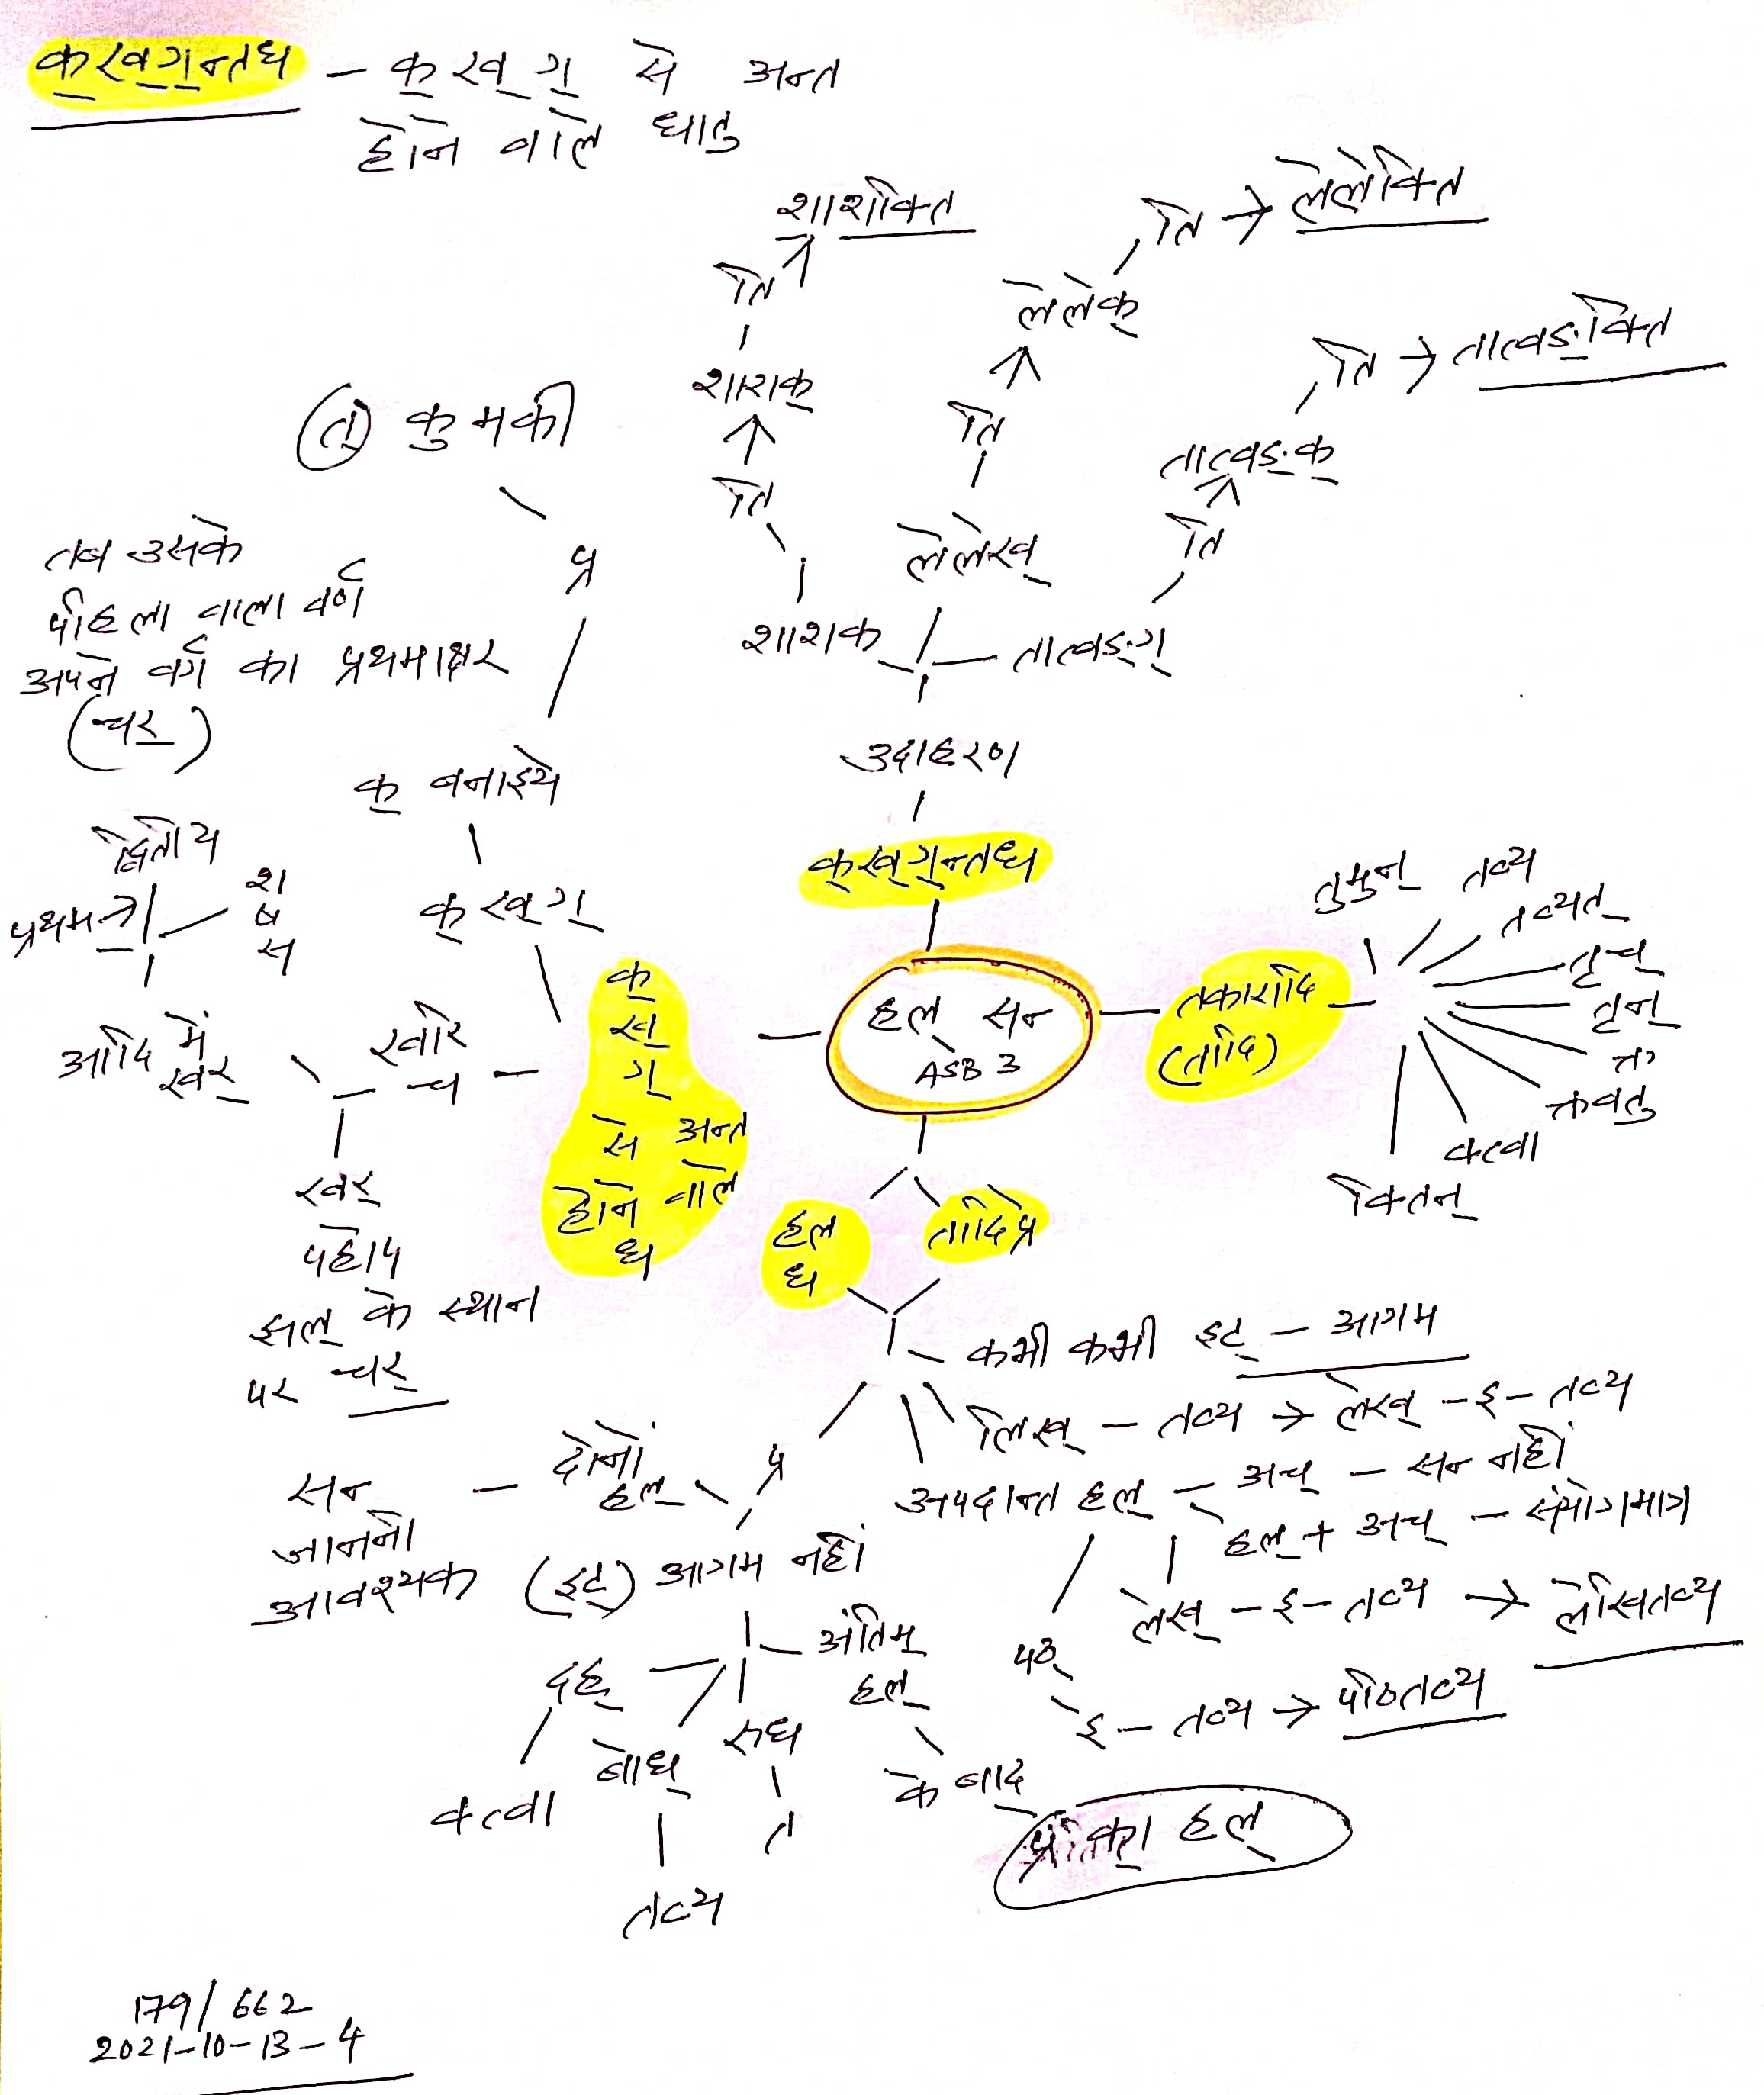 क्ख्ग्न्तध – क् ख् ग् से अन्त
होने वाले धातु
शाशक्ति
ति
शाशक्
ति
शाशक
लेलेक्ति
ति →
लेलेक्
ति
लेलेख्
तात्वङ्क्ति
ति →
तात्वङ्क्
ति
तात्वङ्ग्
उदाहरण
क्ख्ग्न्तध
(त) कुमकी
प्र
क् बनाइये
क् ख् ग्
तब उसके
पहिला वाला वर्ण
अपने वर्ग का प्रथमाक्षर
(चर्)
द्वितीय
प्रथम
श
ष
स
आदि में
खर्
खरि
च
खर्
पहोप
झल् के स्थान
पर चर्
क्
ख्
ग्
से अन्त
होने वाले
ध
हल् सन
ASB 3
तकारादि
(तादि)
तुमुन्
तव्य
तव्यत्
तृच्
तृन्
क्त
क्तवतु
क्त्वा
क्तिन्
हल
ध
तादिप्र
कभी कभी इट् – आगम
लिख् – तव्य → लेख् – इ – तव्य
अपदान्त हल् – अच् – सन नहीं
हल् + अच् – संयोगमात्र
लेख् – इ – तव्य → लेखितव्य
पठ्
इ – तव्य → पठितव्य
प्र
दोनों
हल्
सन
जानना
आवश्यक
(इट्) आगम नहीं
अंतिम्
हल्
के बाद
प्रतिका हल्
दह्
क्त्वा
बोध्
तव्य
रुध
त
179/662
2021-10-13-4